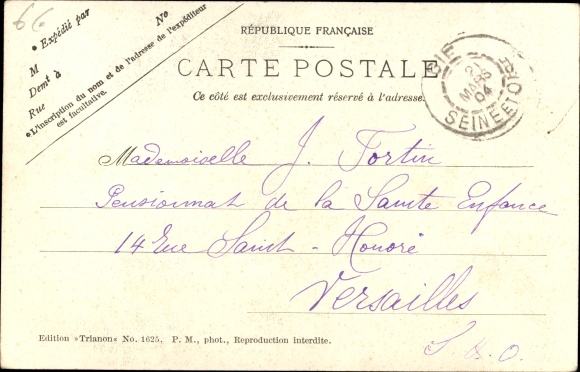 66
No
• Expédié par
M
Demt à
Rue
• L'inscription du nom et de l'adresse de l'expéditeur
est facultative.
RÉPUBLIQUE FRANÇAISE
CARTE POSTALE
Ce côté est exclusivement réservé à l'adresse.
21
MARS
04
SEINE ET OISE
Mademoiselle J. Fortin
Pensionnat de la Sainte Enfance
14 Rue Saint-Honoré
Versailles
S & O.
Edition »Trianon« No. 1625. P. M., phot., Reproduction interdite.